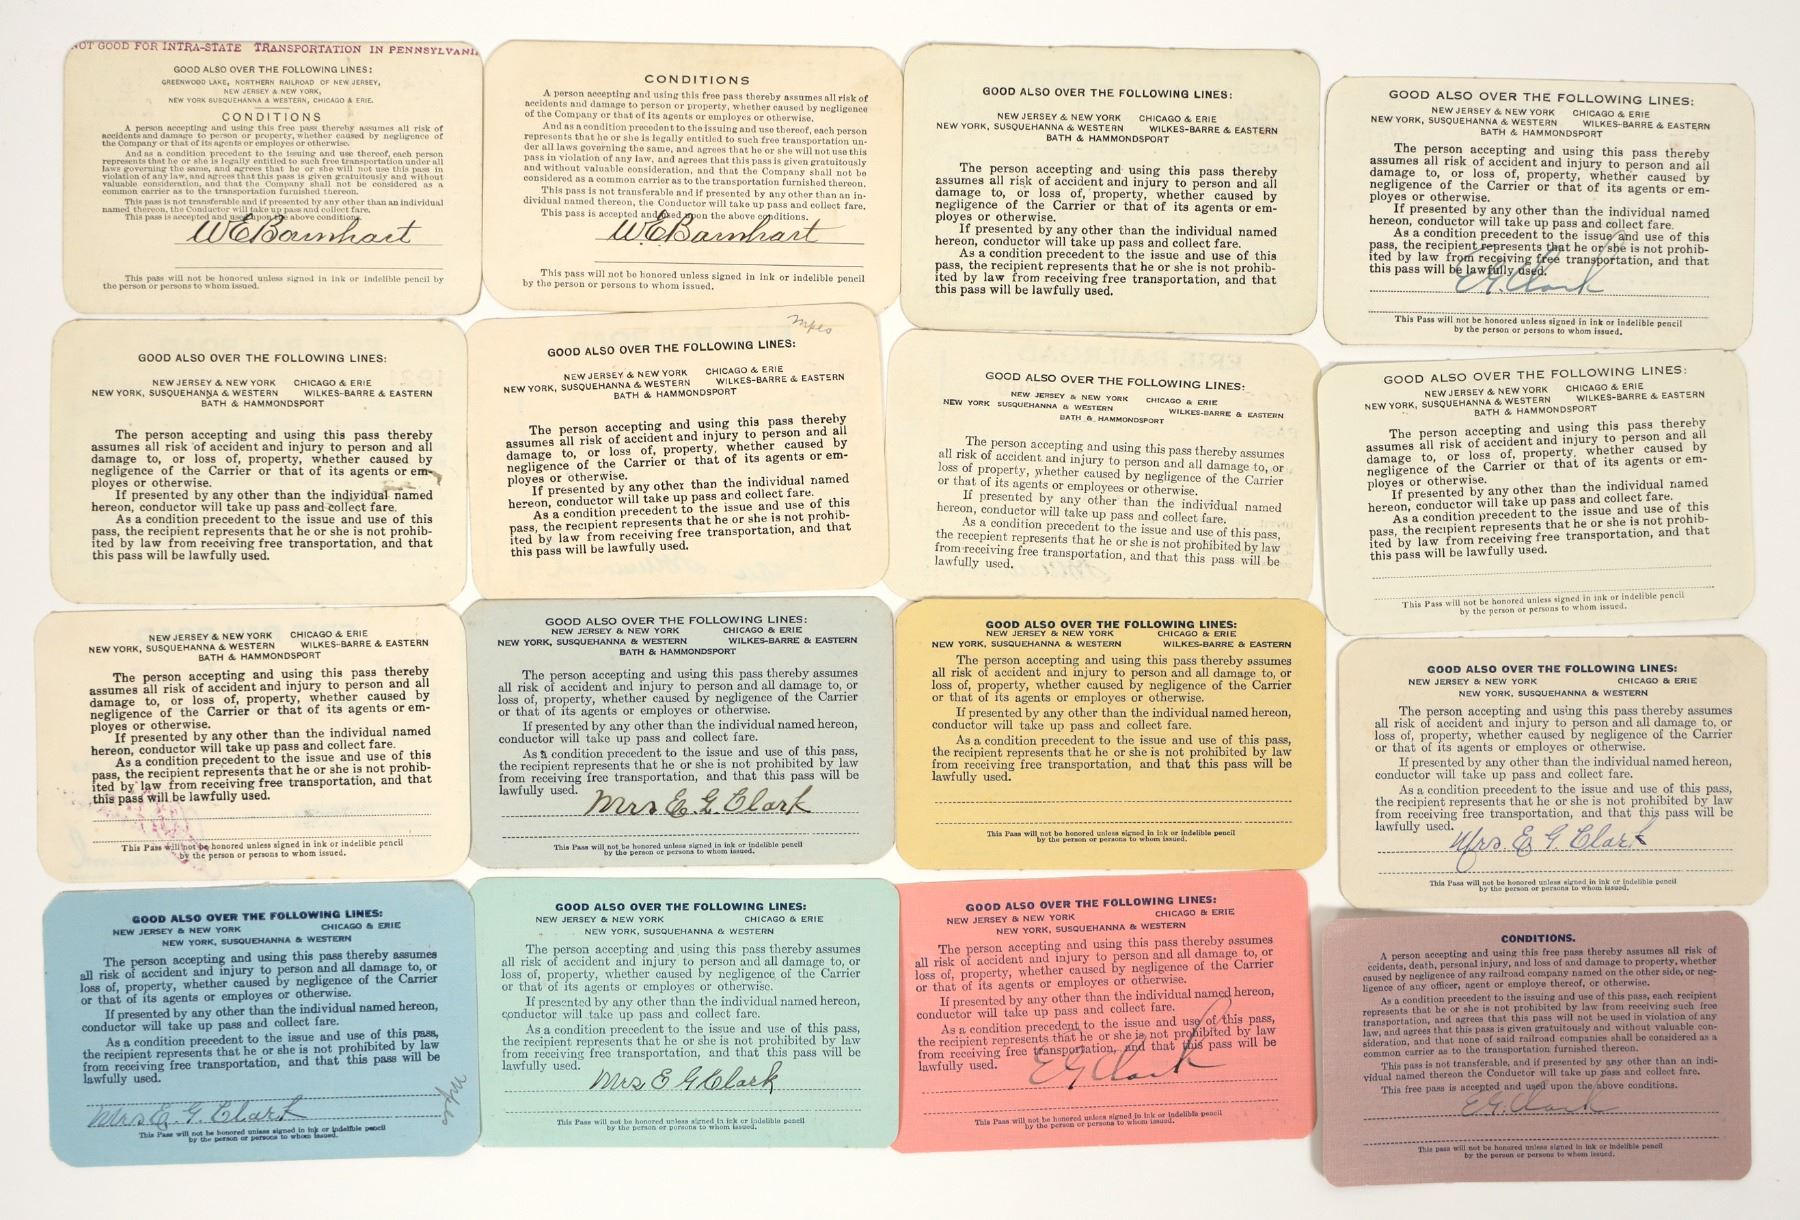 NOT GOOD FOR INTRA-STATE TRANSPORTATION IN PENNSYLVANI
GOOD ALSO OVER THE FOLLOWING LINES:
GREENWOOD LAKE, NORTHERN RAILROAD OF NEW JERSEY,
NEW JERSEY & NEW YORK,
NEW YORK SUSQUEHANNA & WESTERN, CHICAGO & ERIE.
CONDITIONS
A person accepting and using this free pass thereby assumes all risk of
accidents and damage to person or property, whether caused by negligence of
the Company or that of its agents or employes or otherwise.
And as a condition precedent to the issuing and use thereof, each person
represents that he or she is legally entitled to such free transportation under all
laws governing the same, and agrees that he or she will not use this pass in
violation of any law, and agrees that this pass is given gratuitously and without
valuable consideration, and that the Company shall not be considered as a
common carrier as to the transportation furnished thereon.
This pass is not transferable and if presented by any other than an individual
named thereon, the Conductor will take up pass and collect fare.
This pass is accepted and used upon the above conditions.
W E Barnhart
This pass will not be honored unless signed in ink or indelible pencil by
the person or persons to whom issued.
CONDITIONS
A person accepting and using this free pass thereby assumes all risk of
accidents and damage to person or property, whether caused by negligence
of the Company or that of its agents or employes or otherwise.
And as a condition precedent to the issuing and use thereof, each person
represents that he or she is legally entitled to such free transportation un-
der all laws governing the same, and agrees that he or she will not use this
pass in violation of any law, and agrees that this pass is given gratuitously
and without valuable consideration, and that the Company shall not be
considered as a common carrier as to the transportation furnished thereon.
This pass is not transferable and if presented by any other than an in-
dividual named thereon, the Conductor will take up pass and collect fare.
This pass is accepted and used upon the above conditions.
W. E Barnhart
This pass will not be honored unless signed in ink or indelible pencil
by the person or persons to whom issued.
GOOD ALSO OVER THE FOLLOWING LINES:
NEW JERSEY & NEW YORK CHICAGO & ERIE
NEW YORK, SUSQUEHANNA & WESTERN WILKES-BARRE & EASTERN
BATH & HAMMONDSPORT
The person accepting and using this pass thereby
assumes all risk of accident and injury to person and all
damage to, or loss of, property, whether caused by
negligence of the Carrier or that of its agents or em-
ployes or otherwise.
If presented by any other than the individual named
hereon, conductor will take up pass and collect fare.
As a condition precedent to the issue and use of this
pass, the recipient represents that he or she is not prohib-
ited by law from receiving free transportation, and that
this pass will be lawfully used.
GOOD ALSO OVER THE FOLLOWING LINES:
NEW JERSEY & NEW YORK CHICAGO & ERIE
NEW YORK, SUSQUEHANNA & WESTERN WILKES-BARRE & EASTERN
BATH & HAMMONDSPORT
The person accepting and using this pass thereby
assumes all risk of accident and injury to person and all
damage to, or loss of, property, whether caused by
negligence of the Carrier or that of its agents or em-
ployes or otherwise.
If presented by any other than the individual named
hereon, conductor will take up pass and collect fare.
As a condition precedent to the issue and use of this
pass, the recipient represents that he or she is not prohib-
ited by law from receiving free transportation, and that
this pass will be lawfully used.
E. G. Clark
This Pass will not be honored unless signed in ink or indelible pencil
by the person or persons to whom issued.
GOOD ALSO OVER THE FOLLOWING LINES:
NEW JERSEY & NEW YORK CHICAGO & ERIE
NEW YORK, SUSQUEHANNA & WESTERN WILKES-BARRE & EASTERN
BATH & HAMMONDSPORT
The person accepting and using this pass thereby
assumes all risk of accident and injury to person and all
damage to, or loss of, property, whether caused by
negligence of the Carrier or that of its agents or em-
ployes or otherwise.
If presented by any other than the individual named
hereon, conductor will take up pass and collect fare.
As a condition precedent to the issue and use of this
pass, the recipient represents that he or she is not prohib-
ited by law from receiving free transportation, and that
this pass will be lawfully used.
GOOD ALSO OVER THE FOLLOWING LINES:
NEW JERSEY & NEW YORK CHICAGO & ERIE
NEW YORK, SUSQUEHANNA & WESTERN WILKES-BARRE & EASTERN
BATH & HAMMONDSPORT
The person accepting and using this pass thereby
assumes all risk of accident and injury to person and all
damage to, or loss of, property, whether caused by
negligence of the Carrier or that of its agents or em-
ployes or otherwise.
If presented by any other than the individual named
hereon, conductor will take up pass and collect fare.
As a condition precedent to the issue and use of this
pass, the recipient represents that he or she is not prohib-
ited by law from receiving free transportation, and that
this pass will be lawfully used.
GOOD ALSO OVER THE FOLLOWING LINES:
NEW JERSEY & NEW YORK CHICAGO & ERIE
NEW YORK SUSQUEHANNA & WESTERN WILKES-BARRE & EASTERN
BATH & HAMMONDSPORT
The person accepting and using this pass thereby assumes
all risk of accident and injury to person and all damage to, or
loss of property, whether caused by negligence of the Carrier
or that of its agents or employees or otherwise.
If presented by any other than the individual named
hereon, conductor will take up pass and collect fare.
As a condition precedent to the issue and use of this pass,
the recipient represents that he or she is not prohibited by law
from receiving free transportation, and that this pass will be
lawfully used.
GOOD ALSO OVER THE FOLLOWING LINES:
NEW JERSEY & NEW YORK CHICAGO & ERIE
NEW YORK, SUSQUEHANNA & WESTERN WILKES-BARRE & EASTERN
BATH & HAMMONDSPORT
The person accepting and using this pass thereby
assumes all risk of accident and injury to person and all
damage to, or loss of, property, whether caused by
negligence of the Carrier or that of its agents or em-
ployes or otherwise.
If presented by any other than the individual named
hereon, conductor will take up pass and collect fare.
As a condition precedent to the issue and use of this
pass, the recipient represents that he or she is not prohib-
ited by law from receiving free transportation, and that
this pass will be lawfully used.
This Pass will not be honored unless signed in ink or indelible pencil
by the person or persons to whom issued.
NEW JERSEY & NEW YORK CHICAGO & ERIE
NEW YORK, SUSQUEHANNA & WESTERN WILKES-BARRE & EASTERN
BATH & HAMMONDSPORT
The person accepting and using this pass thereby
assumes all risk of accident and injury to person and all
damage to, or loss of, property, whether caused by
negligence of the Carrier or that of its agents or em-
ployes or otherwise.
If presented by any other than the individual named
hereon, conductor will take up pass and collect fare.
As a condition precedent to the issue and use of this
pass, the recipient represents that he or she is not prohib-
ited by law from receiving free transportation, and that
this pass will be lawfully used.
This Pass will not be honored unless signed in ink or indelible pencil
by the person or persons to whom issued.
GOOD ALSO OVER THE FOLLOWING LINES:
NEW JERSEY & NEW YORK CHICAGO & ERIE
NEW YORK, SUSQUEHANNA & WESTERN WILKES-BARRE & EASTERN
BATH & HAMMONDSPORT
The person accepting and using this pass thereby assumes
all risk of accident and injury to person and all damage to, or
loss of, property, whether caused by negligence of the Carrier
or that of its agents or employes or otherwise.
If presented by any other than the individual named hereon,
conductor will take up pass and collect fare.
As a condition precedent to the issue and use of this pass,
the recipient represents that he or she is not prohibited by law
from receiving free transportation, and that this pass will be
lawfully used.
Mrs E. G. Clark
This Pass will not be honored unless signed in ink or indelible pencil
by the person or persons to whom issued.
GOOD ALSO OVER THE FOLLOWING LINES:
NEW JERSEY & NEW YORK CHICAGO & ERIE
NEW YORK, SUSQUEHANNA & WESTERN WILKES-BARRE & EASTERN
The person accepting and using this pass thereby assumes
all risk of accident and injury to person and all damage to, or
loss of, property, whether caused by negligence of the Carrier
or that of its agents or employes or otherwise.
If presented by any other than the individual named hereon,
conductor will take up pass and collect fare.
As a condition precedent to the issue and use of this pass,
the recipient represents that he or she is not prohibited by law
from receiving free transportation, and that this pass will be
lawfully used.
This Pass will not be honored unless signed in ink or indelible pencil
by the person or persons to whom issued.
GOOD ALSO OVER THE FOLLOWING LINES:
NEW JERSEY & NEW YORK CHICAGO & ERIE
NEW YORK, SUSQUEHANNA & WESTERN
The person accepting and using this pass thereby assumes
all risk of accident and injury to person and all damage to, or
loss of, property, whether caused by negligence of the Carrier
or that of its agents or employes or otherwise.
If presented by any other than the individual named hereon,
conductor will take up pass and collect fare.
As a condition precedent to the issue and use of this pass,
the recipient represents that he or she is not prohibited by law
from receiving free transportation, and that this pass will be
lawfully used.
Mrs. E G. Clark
This Pass will not be honored unless signed in ink or indelible pencil
by the person or persons to whom issued.
GOOD ALSO OVER THE FOLLOWING LINES:
NEW JERSEY & NEW YORK CHICAGO & ERIE
NEW YORK, SUSQUEHANNA & WESTERN
The person accepting and using this pass thereby assumes
all risk of accident and injury to person and all damage to, or
loss of, property, whether caused by negligence of the Carrier
or that of its agents or employes or otherwise.
If presented by any other than the individual named hereon,
conductor will take up pass and collect fare.
As a condition precedent to the issue and use of this pass,
the recipient represents that he or she is not prohibited by law
from receiving free transportation, and that this pass will be
lawfully used.
Mrs E. G. Clark
This Pass will not be honored unless signed in ink or indelible pencil
by the person or persons to whom issued.
GOOD ALSO OVER THE FOLLOWING LINES:
NEW JERSEY & NEW YORK CHICAGO & ERIE
NEW YORK, SUSQUEHANNA & WESTERN
The person accepting and using this pass thereby assumes
all risk of accident and injury to person and all damage to, or
loss of, property, whether caused by negligence of the Carrier
or that of its agents or employes or otherwise.
If presented by any other than the individual named hereon,
conductor will take up pass and collect fare.
As a condition precedent to the issue and use of this pass,
the recipient represents that he or she is not prohibited by law
from receiving free transportation, and that this pass will be
lawfully used.
Mrs E G Clark
This Pass will not be honored unless signed in ink or indelible pencil
by the person or persons to whom issued.
GOOD ALSO OVER THE FOLLOWING LINES:
NEW JERSEY & NEW YORK CHICAGO & ERIE
NEW YORK, SUSQUEHANNA & WESTERN
The person accepting and using this pass thereby assumes
all risk of accident and injury to person and all damage to, or
loss of, property, whether caused by negligence of the Carrier
or that of its agents or employes or otherwise.
If presented by any other than the individual named hereon,
conductor will take up pass and collect fare.
As a condition precedent to the issue and use of this pass,
the recipient represents that he or she is not prohibited by law
from receiving free transportation, and that this pass will be
lawfully used.
E G Clark
This Pass will not be honored unless signed in ink or indelible pencil
by the person or persons to whom issued.
CONDITIONS.
A person accepting and using this free pass thereby assumes all risk of
ccidents, death, personal injury, and loss of and damage to property, whether
caused by negligence of any railroad company named on the other side, or neg-
ligence of any officer, agent or employe thereof, or otherwise.
As a condition precedent to the issuing and use of this pass, each recipient
represents that he or she is not prohibited by law from receiving such free
transportation, and agrees that this pass will not be used in violation of any
law, and agrees that this pass is given gratuitously and without valuable con-
sideration, and that none of said railroad companies shall be considered as a
common carrier as to the transportation furnished thereon.
This pass is not transferable, and if presented by any other than an indi-
vidual named thereon the Conductor will take up pass and collect fare.
This free pass is accepted and used upon the above conditions.
E G. Clark
This pass will not be honored unless signed in ink or indelible pencil
by the person or persons to whom issued.